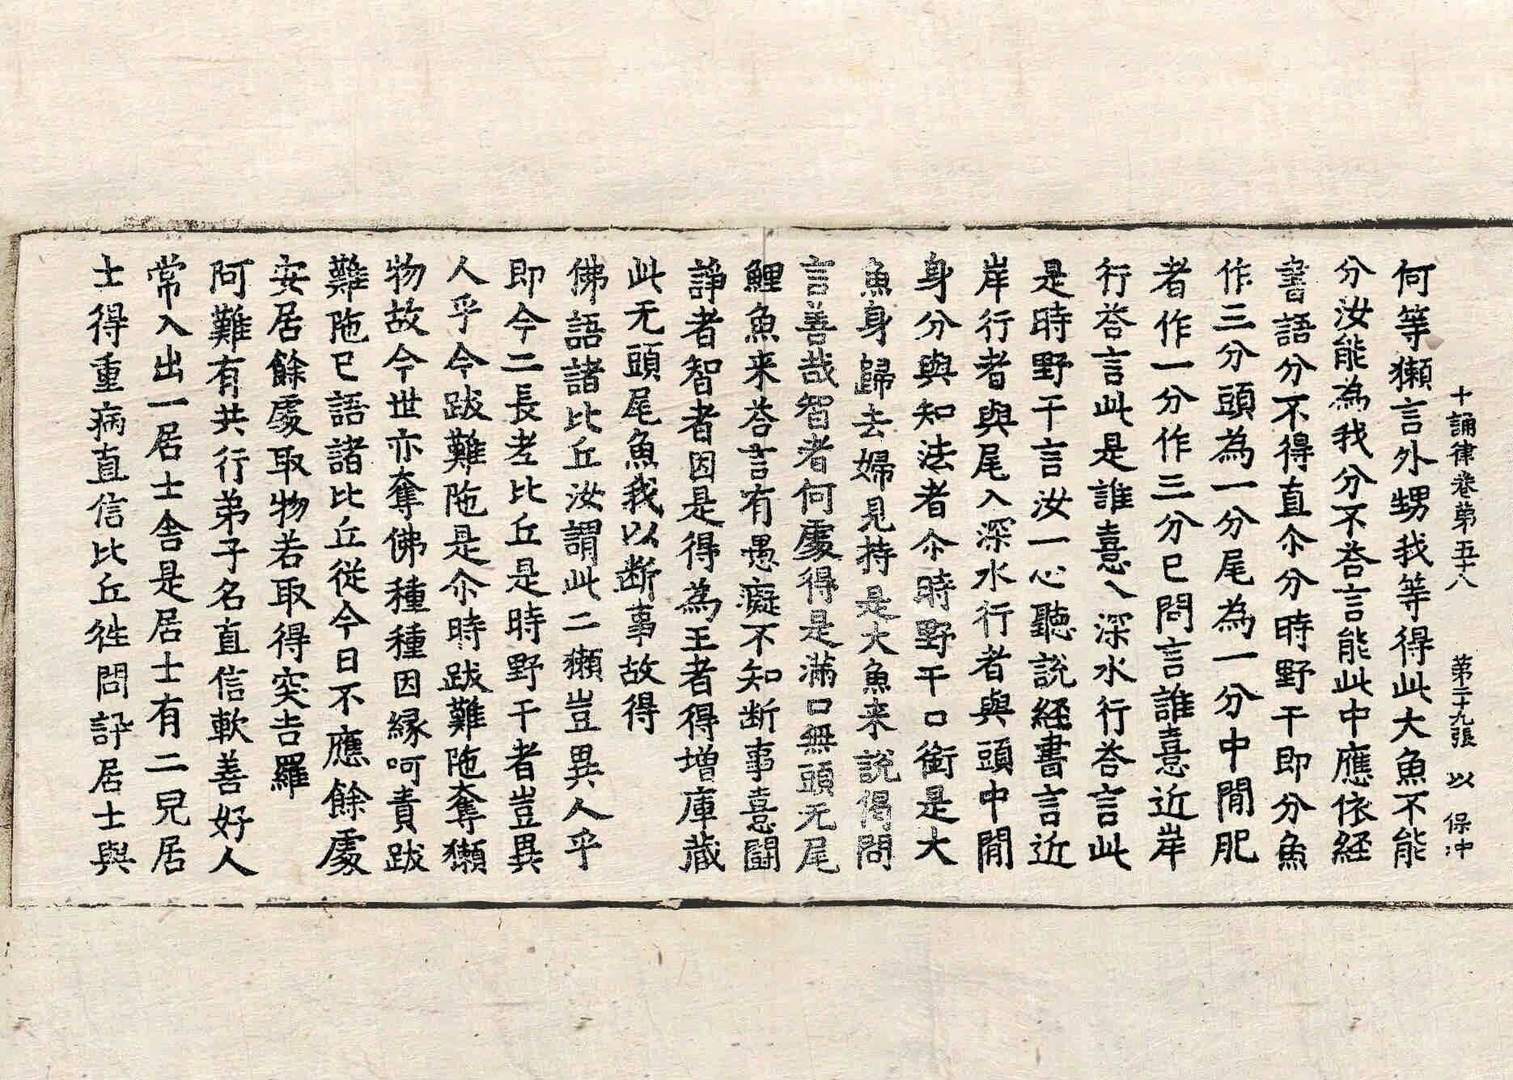 十誦律卷第五十八 第二十九張 以 保冲
何等獺言外甥我等得此大魚不能
分汝能為我分不荅言能此中應依経
書語分不得直尒分時野干即分魚
作三分頭為一分尾為一分中間肥
者作一分作三分已問言誰憙近岸
行荅言此是誰憙入深水行荅言此
是時野干言汝一心聽說経書言近
岸行者與尾入深水行者與頭中間
身分與知法者尒時野干口銜是大
魚身歸去婦見持是大魚来說偈問
言善哉智者何處得是滿口無頭无尾
鯉魚来荅言有愚癡不知断事憙闘
諍者智者因是得為王者得增庫蔵
此无頭尾魚我以断事故得
佛語諸比丘汝謂此二獺豈異人乎
即今二長老比丘是時野干者豈異
人乎今跋難陁是尒時跋難陁奪獺
物故今世亦奪佛種種因縁呵責跋
難陁已語諸比丘從今日不應餘處
安居餘處取物若取得突吉羅
阿難有共行弟子名直信軟善好人
常入出一居士舍是居士有二兒居
士得重病直信比丘徃問訊居士與